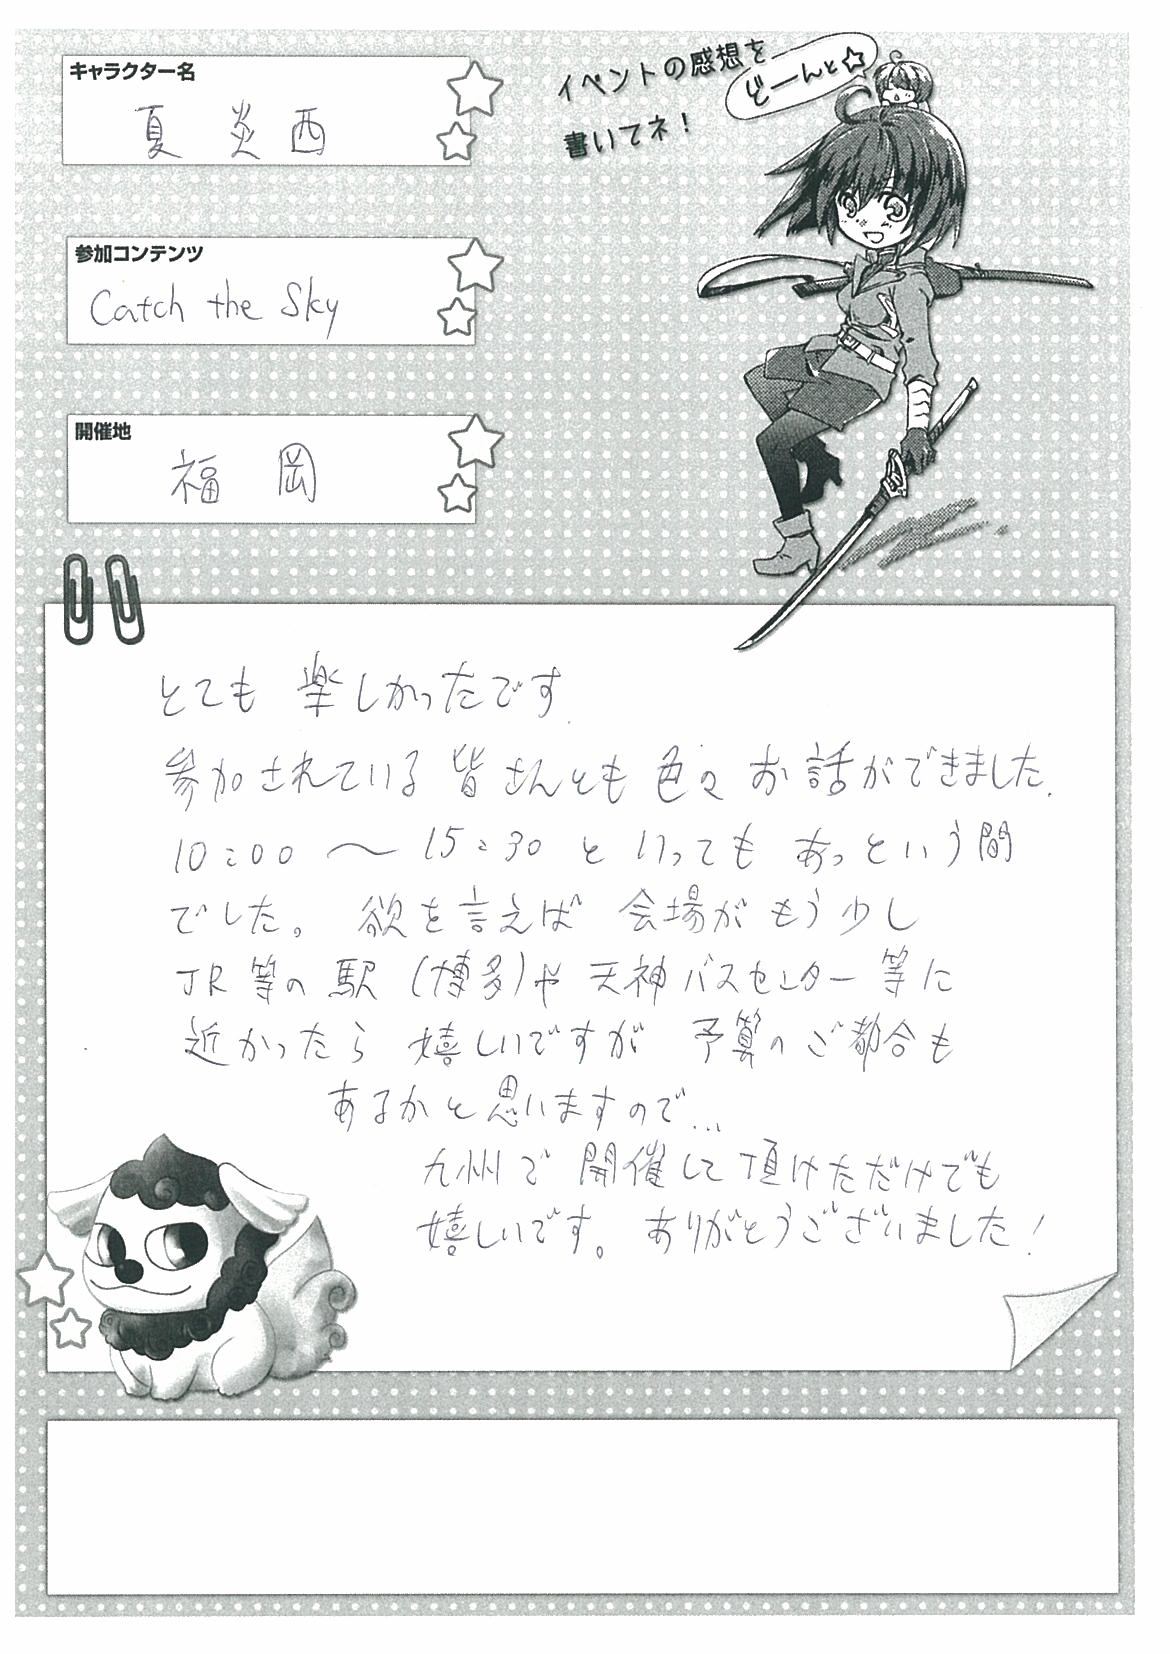 キャラクター名
夏 炎西
イベントの感想を
どーんと☆
書いてネ!
参加コンテンツ
Catch the Sky
開催地
福 岡
とても 楽しかったです.
参加されている 皆さんとも 色々 お話ができました.
10:00 〜 15:30 と いっても あっという間
でした。 欲を言えば 会場が もう少し
JR等の 駅 (博多)や 天神バスセンター 等に
近かったら 嬉しいですが 予算の ご都合も
あるかと 思いますので...
九州で 開催して 頂けただけでも
嬉しいです。 ありがとうございました!